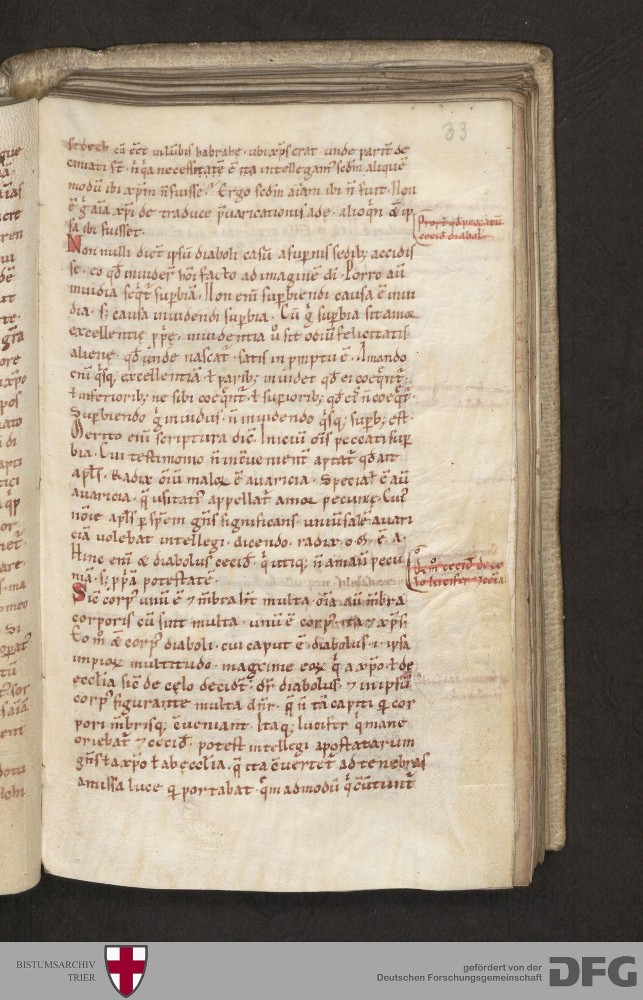 33
sedech cū ēēt in lūbis habrahę · ubi xp̄s erat · unde pariť de
cimati sť · n̄ q̄a necessitatē ē ita intellegam̄ scđm aliquē
modū ibi xp̄m n̄ fuisse · Ergo scđm aīam ibi n̄ fuit · Non
ē ḡ aīa xp̄i de traduce p̄uaricationis adę · alioq̄n & ip
sa ibi fuisset ·
Non nulli dicť ipsū diaboli casū a supernis sedib; accidis
se · eo qđ inuiderit hōi facto ad imaginē dī · Porro aū
inuidia seq̄ť superbiā · Non enī superbiendi causa ē inui
dia · s; causa inuidendi superbia · Cū ḡ superbia sit amor
excellentię pp̄ę · inuidentia ů sit odiū felicitatis
alienę · qđ unde nascať · satis in p̄mptu ē · Amando
enī q̄sq; excellentiā ł parib; inuidet qđ ei coeq̄nť ·
ł inferiorib; ne sibi coeq̄nť · ł superiorib; qđ eis n̄ coeq̄ť ·
Superbiendo ḡ inuidus · n̄ inuidendo q̄sq; superb; est ·
Merito enī scriptura dic̄ · Iniciū oīs peccati sup
bia · Cui testimonio n̄ incōuenienť aptať qđ aiť
apl̄s · Radix oīū maloꝝ ē auaricia · Specialit̄ ē aū
auaricia · q̄ usitati' appellať amor pecunię · Cui'
noīe apl̄s p sp̄em gn̄s significans uniuersalē auari
ciā uolebat intellegi · dicendo · radix · o · m · ē · a ·
Hinc enī & diabolus cecid̄ · q̄ utiq; n̄ amauit pecu
niā · s; pp̄ā potestatē ·
Sic̄ corp' unū ē ⁊ mb̄ra hn̄t multa · oīa aū mb̄ra
corporis cū sint multa · unū ē corp' · ita ⁊ xp̄s ·
Eo m̊ & corp' diaboli · cui caput ē diabolus · i · ipsa
impioꝝ multitudo · maxime eoꝝ q̄ a xp̄o · ł de
ęcclīa sic̄ de cęlo decidť · dr̄ diabolus · ⁊ in ipsū
corp' figurantę multa dn̄r · q̄ n̄ tā capiti q̄ cor
pori mb̄risq; cōueniant · Itaq; lucifer q̄ mane
oriebať ⁊ cecid̄ · potest intellegi apostatarum
gn̄s ł a xp̄o ł ab ęcclīa · q̄ ita cōuerteť ad tenebras
amissa luce quā portabat · q̄m admodū q̄ cōuertunť
BISTUMSARCHIV
TRIER
gefördert von der
Deutschen Forschungsgemeinschaft
DFG